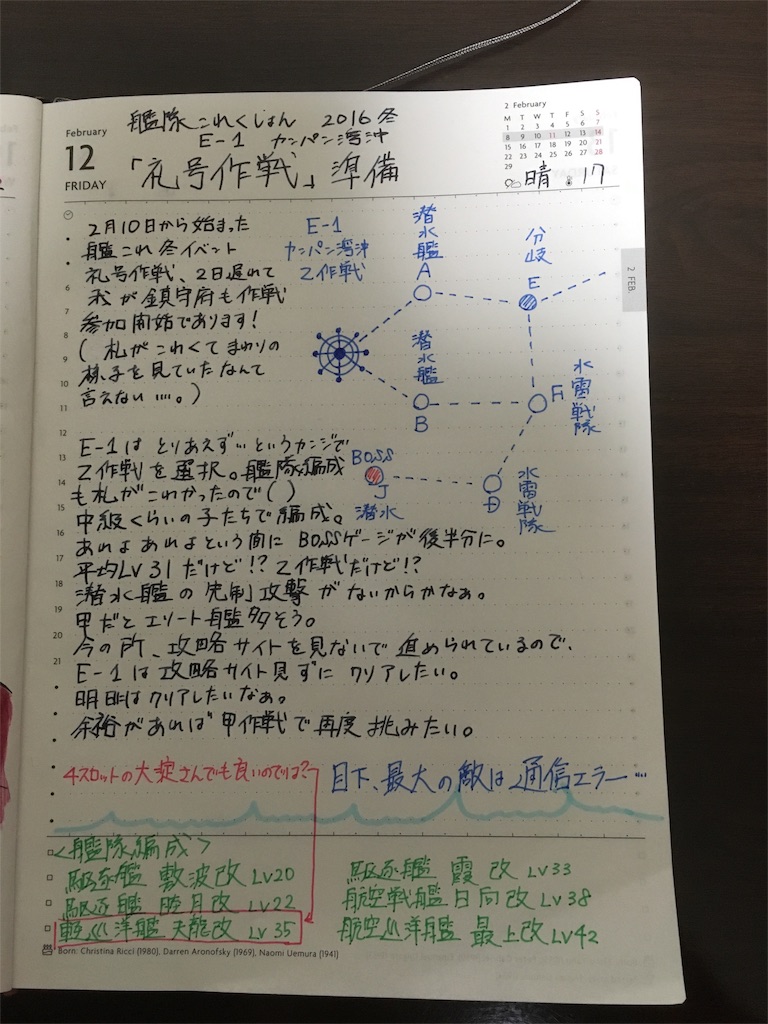 February
12
FRIDAY
艦隊これくしょん 2016冬
E-1 カンパン湾沖
「礼号作戦」準備
2 February
M T W T F S S
1 2 3 4 5 6 7
8 9 10 11 12 13 14
15 16 17 18 19 20 21
22 23 24 25 26 27 28
29
晴 17
2月10日から始まった
艦これ冬イベント
礼号作戦、2日遅れて
我が鎮守府も作戦
参加開始であります!
(札がこわくてまわりの
様子を見ていたなんて
言えない……。)
E-1
カンパン湾沖
乙作戦
潜水艦
A
分岐
E
潜水艦
B
水雷戦隊
F
水雷戦隊
D
BOSS
J
潜水
2 FEB.
6
7
8
9
10
11
12
13
14
15
16
17
18
19
20
21
E-1はとりあえず…というカンジで
乙作戦を選択。艦隊編成
も札がこわかったので( )
中級くらいの子たちで編成。
あれよあれよという間にBOSSゲージが後半分に。
平均Lv31だけど!?乙作戦だけど!?
潜水艦の先制攻撃がないからかなぁ。
甲だとエリート艦多そう。
今の所、攻略サイトを見ないで進められているので、
E-1は攻略サイト見ずにクリアしたい。
明日にはクリアしたいなぁ。
余裕があれば甲作戦で再度挑みたい。
4スロットの大淀さんでも良いのでは?
目下、最大の敵は通信エラー…
<艦隊編成>
駆逐艦 敷波改 Lv20
駆逐艦 睦月改 Lv22
軽巡洋艦 天龍改 Lv35
駆逐艦 霞改 Lv33
航空戦艦 日向改 Lv38
航空巡洋艦 最上改 Lv42
Born: Christina Ricci (1980), Darren Aronofsky (1969), Naomi Uemura (1941)